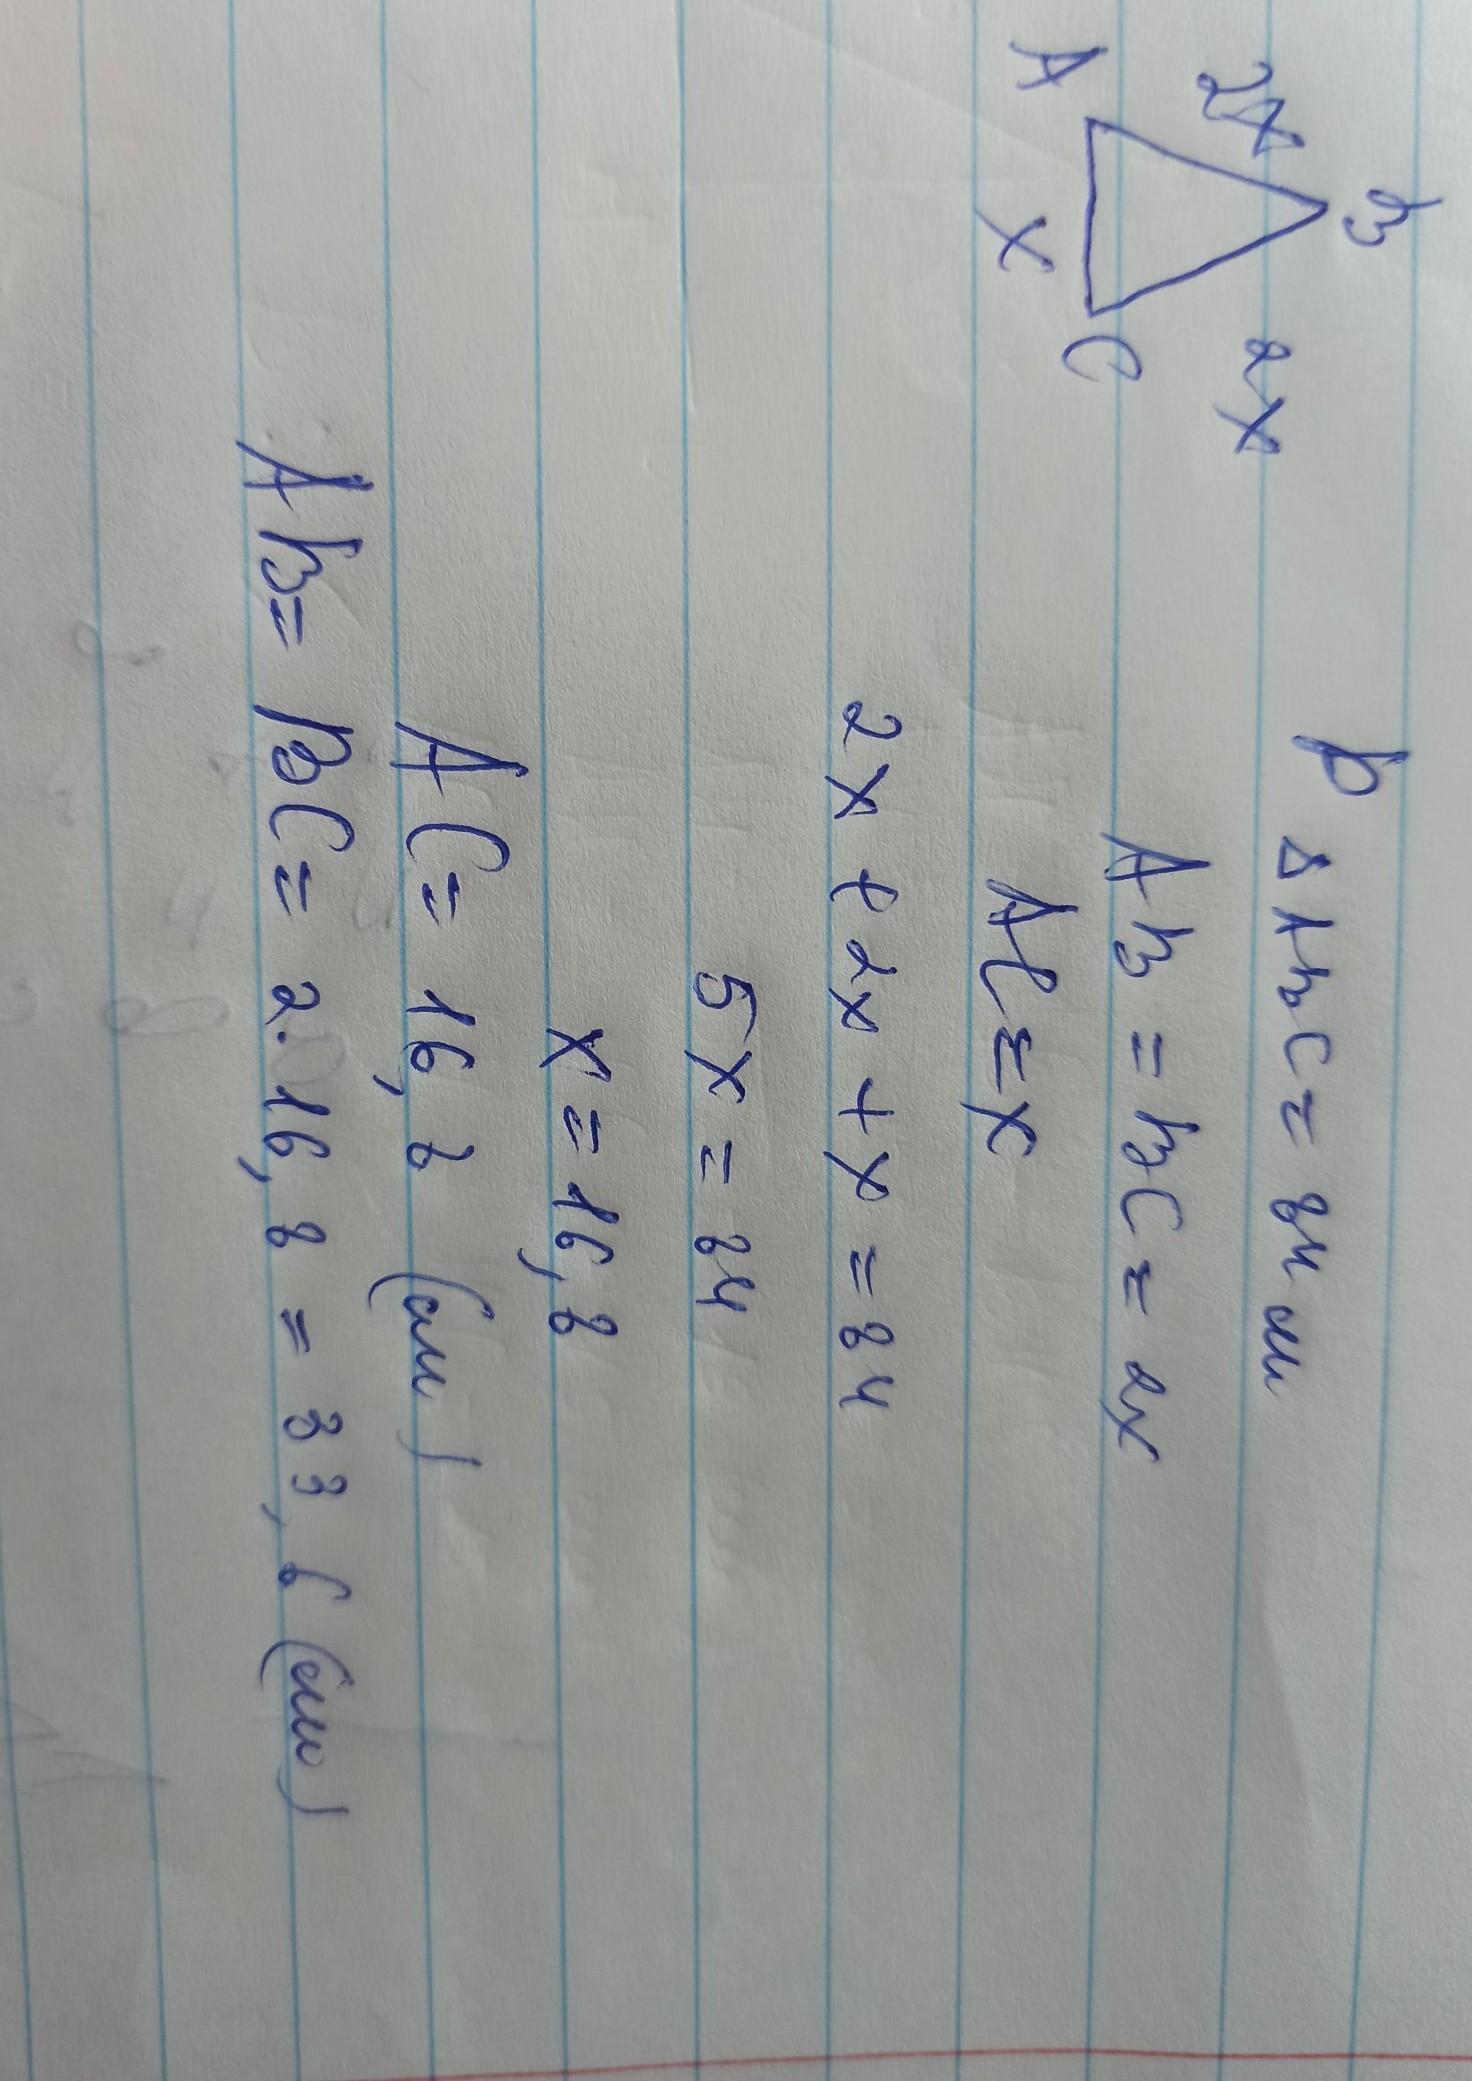 B
2x
2x
A
C
x
P ΔABC = 84 см
AB = BC = 2x
AC = x
2x + 2x + x = 84
5x = 84
x = 16,8
AC = 16,8 (см)
AB = BC = 2·16,8 = 33,6 (см)